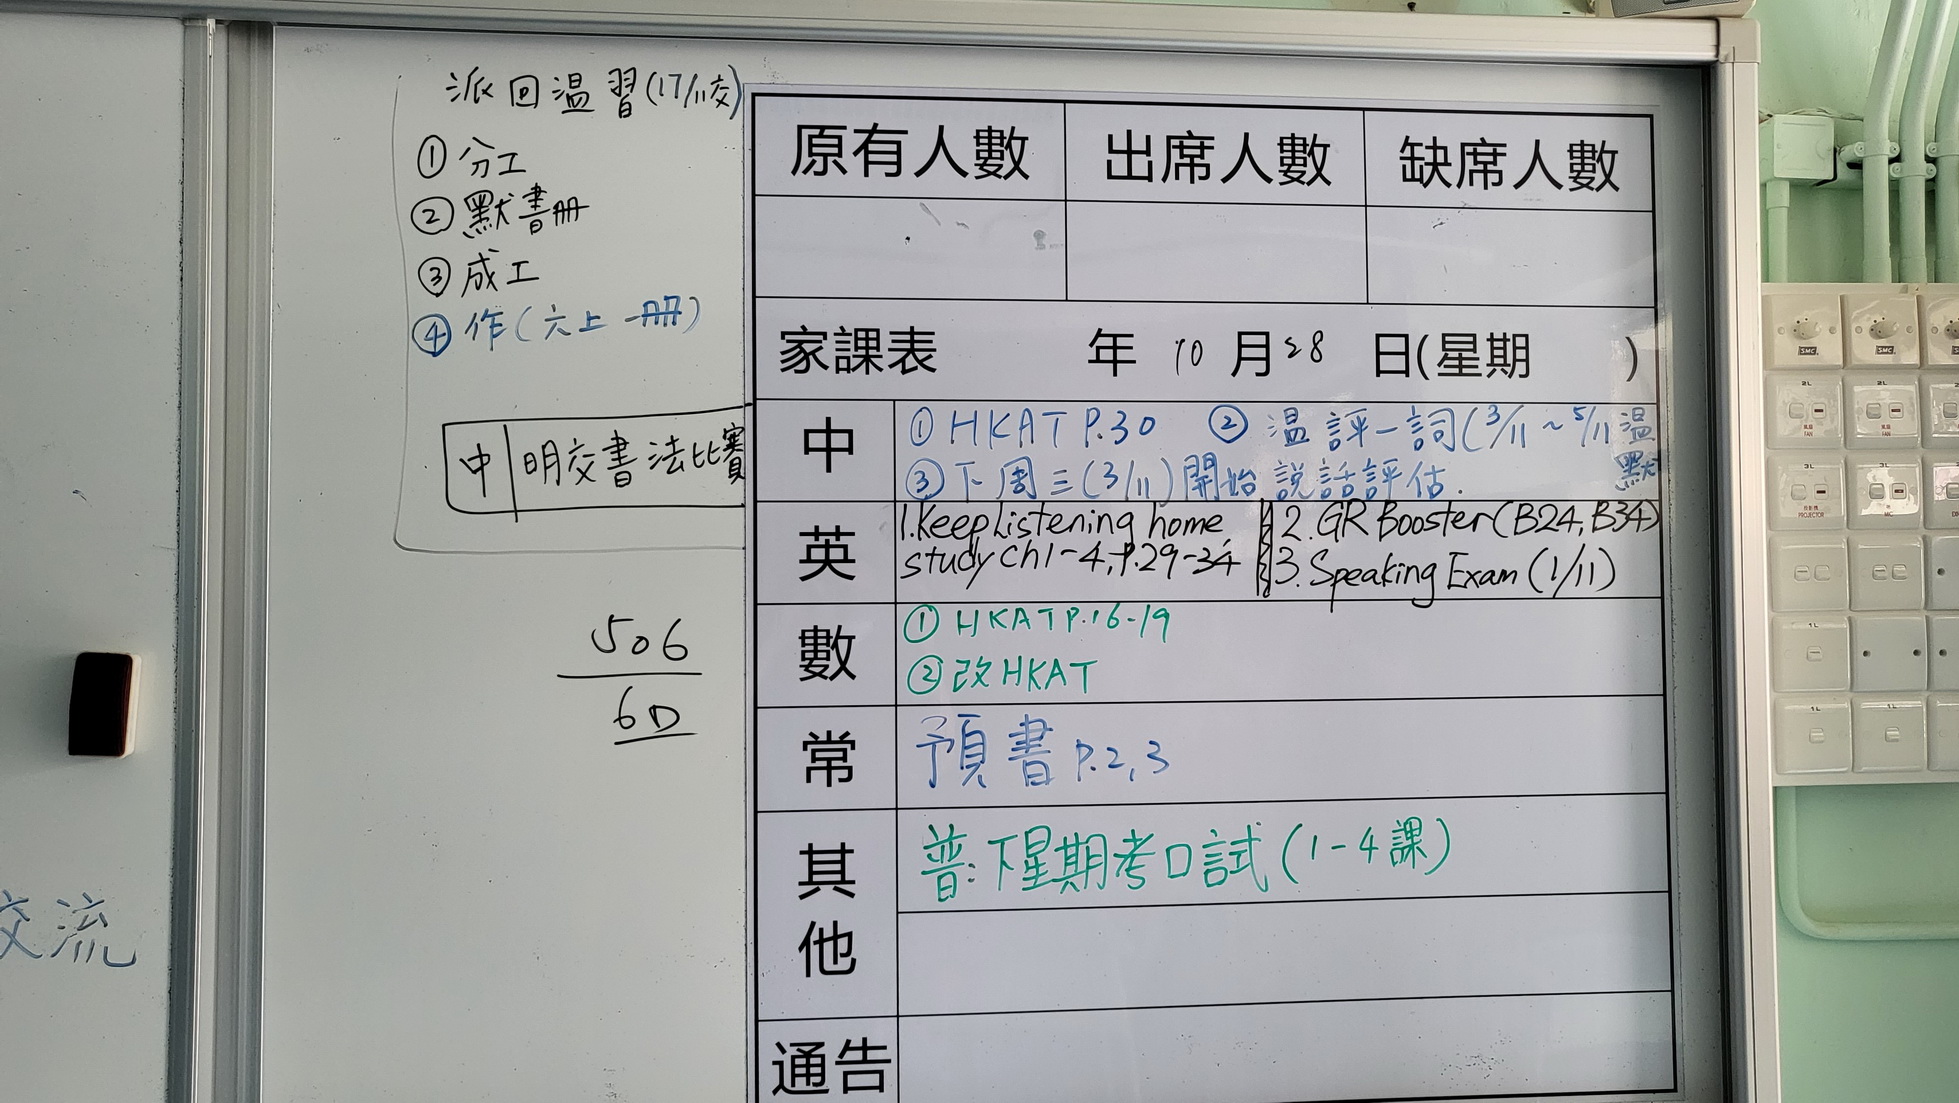 派回温習(17/11交)
① 分工
② 默書冊
③ 成工
④ 作(六上一冊)
中 明交書法比賽
506
6D
交流
原有人數 出席人數 缺席人數
家課表 年 10 月 28 日(星期 )
中 ① HKAT P.30 ② 温評一詞(3/11~5/11温默
③ 下周三(3/11)開始説話評估.
英 1.Keep Listening home study Ch1-4, P.29-34
2. GR Booster(B24, B34)
3. Speaking Exam (1/11)
數 ① HKAT P.16-19
② 改HKAT
常 預書 P.2,3
其他 普:下星期考口試(1-4課)
通告